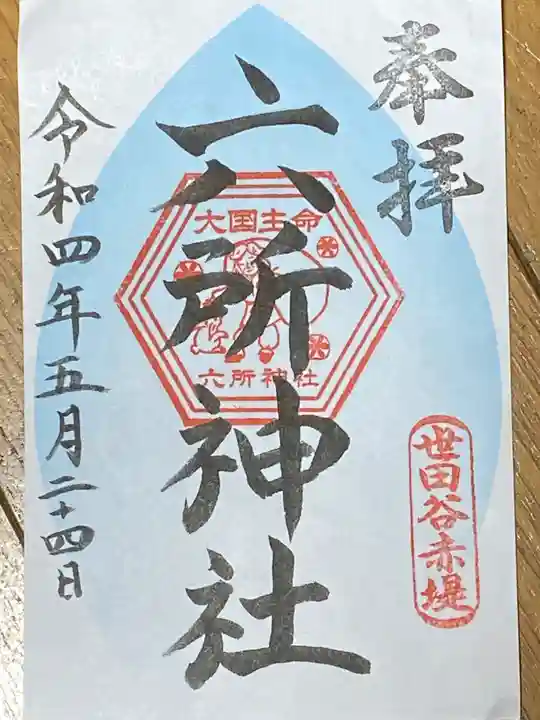 奉拝
世田谷赤堤
六所神社
大国主命
六所神社
令和四年五月二十四日